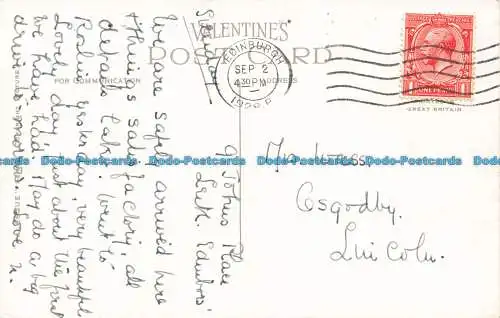 VALENTINE'S
POSTCARD
FOR COMMUNICATION
ADDRESS
EDINBURGH
SEP 2
4 30 PM
ONE PENNY
GREAT BRITAIN
9 Johns Place
Leith. Edinboro'
Saturday
We are safely arrived here
& things satisfactory, all
details later. Went to
Roslin yesterday, very beautiful
Lovely day, just about the first
we have had. May do a big
drive. Love
Osgodby.
Lincoln.
Dodo-Postcards Dodo-Postcards Dodo-Postcards Dodo-Postcards Dodo-Postcards Dodo-Postcards